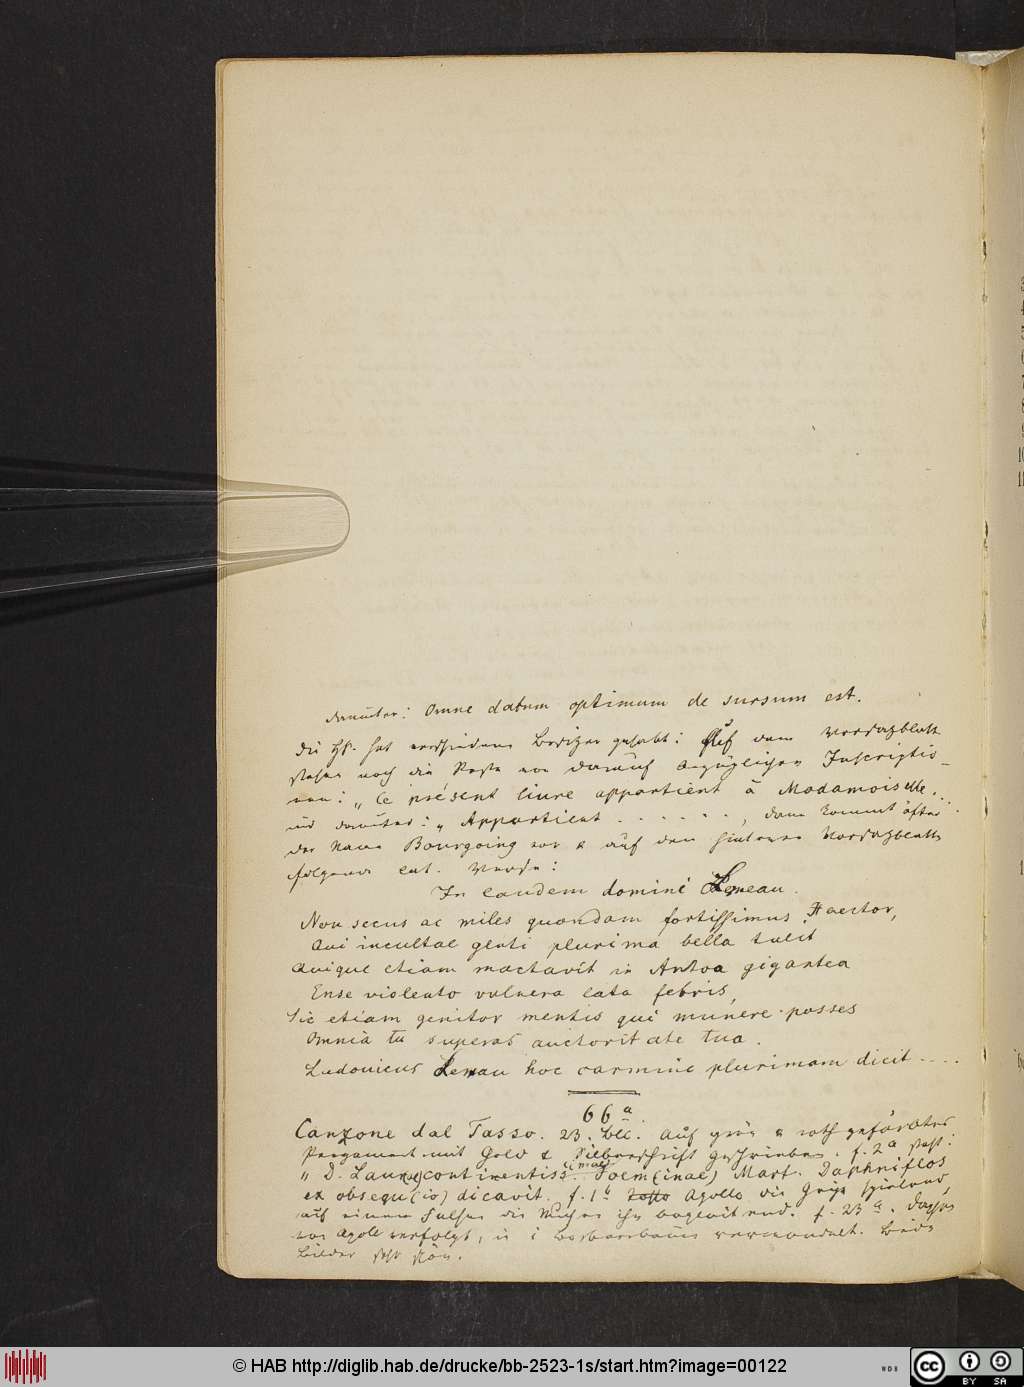 darunter: Omne datum optimum de sursum est.
Die Hs. hat verschiedene Besitzer gehabt: Auf dem Vorsatzblatt
stehen noch die Reste von darauf bezüglichen Inscriptio-
nen: „Ce présent liure appartient à Madamoiselle..
und darunter: „Appartient . . . . . . , dann kommt öfter
der Name Bourgoing vor & auf dem hinteren Vorsatzblatt
folgende lat. Verse:
In laudem domini Leneau.
Non secus ac miles quondam fortissimus Haector,
Qui incultae genti plurima bella tulit
Quique etiam mactavit in gigantea
Ense violento vulnera lata febris,
Sic etiam genitor mentis qui munere posses
Omnia tu superas auctoritate tua.
Ludouicus Lenau hoc carmine plurimam dicit ....
66a.
Canzone dal Tasso. 23. Bll. Auf grün & roth gefärbtes
Pergament mit Gold & Silberschrift geschrieben. f. 2a steht:
„D. continentiss. Poem(inae) Mart. Daphniflos
ex obsequ(io) dicavit. f. 1b Apollo die Geige spielend,
auf einem Felsen die Musen ihn begleitend. f. 23a. Daphne
von Apollo verfolgt, in verwandelt. Beide
Bilder sehr schön.
© HAB http://diglib.hab.de/drucke/bb-2523-1s/start.htm?image=00122
WDB
cc
BY SA